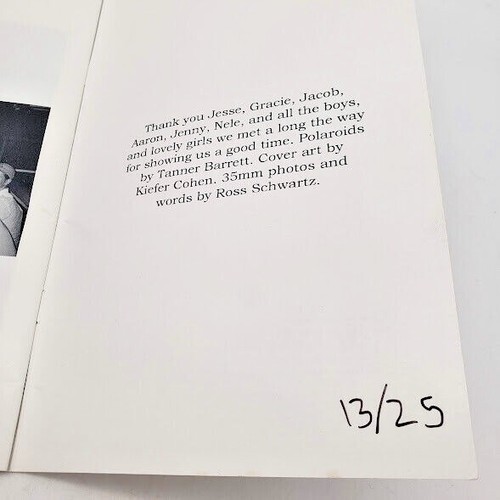 Thank you Jesse, Gracie, Jacob,
Aaron, Jenny, Nele, and all the boys,
and lovely girls we met a long the way
for showing us a good time. Polaroids
by Tanner Barrett. Cover art by
Kiefer Cohen. 35mm photos and
words by Ross Schwartz.
13/25